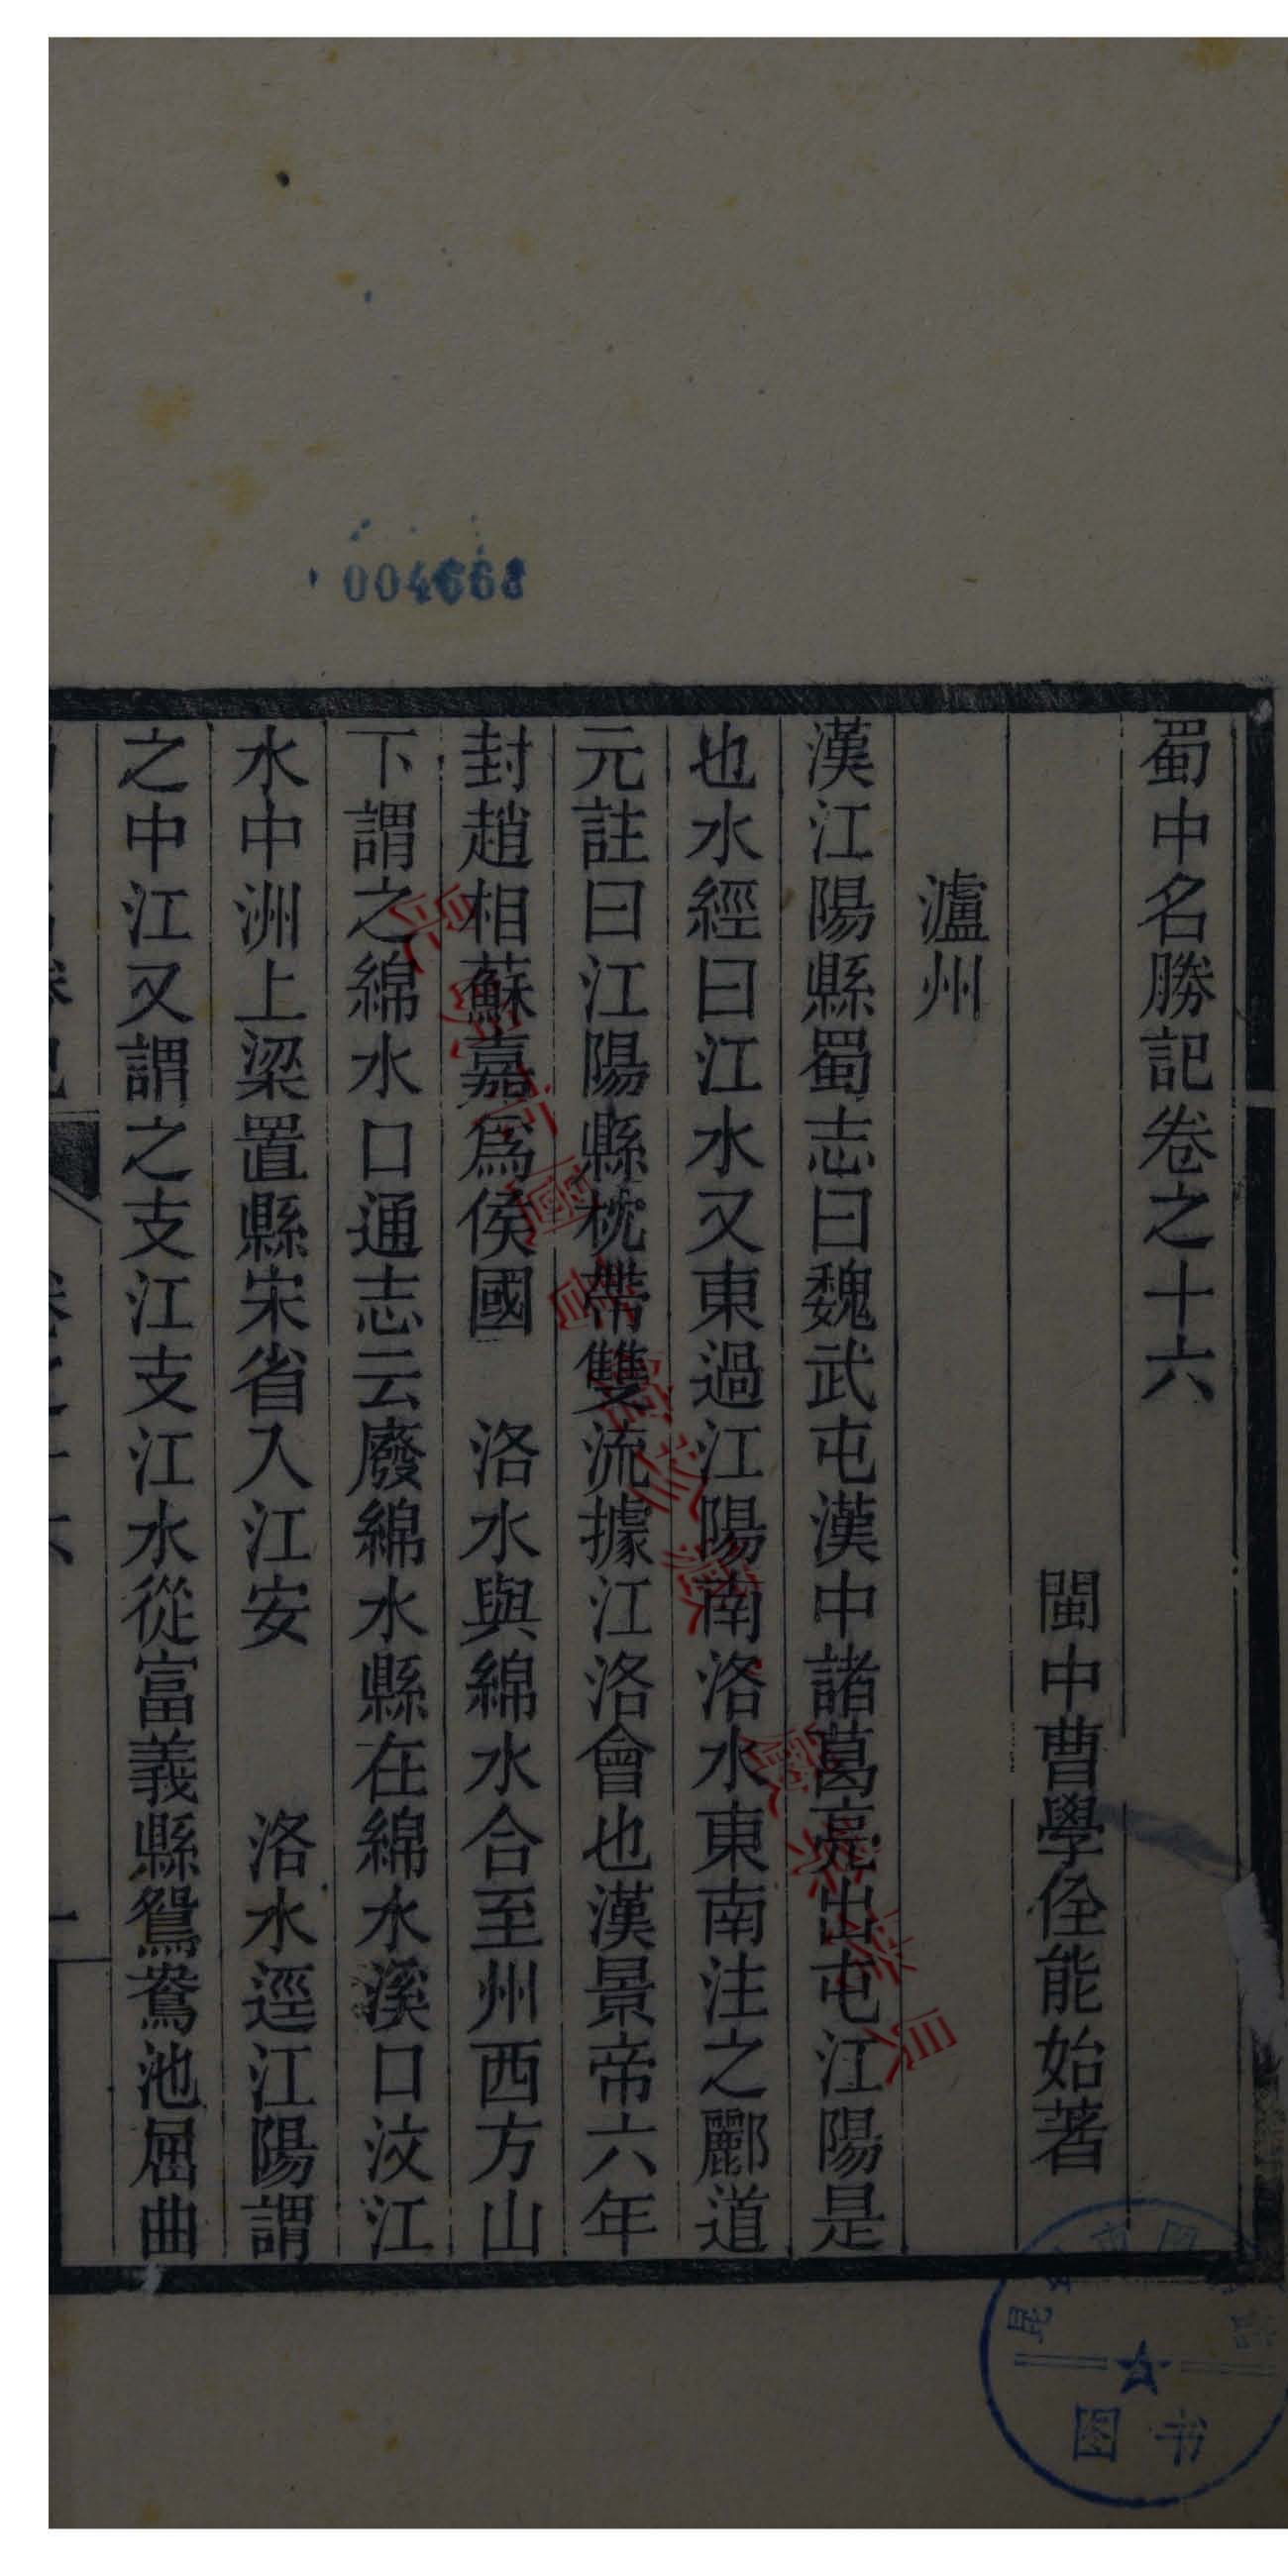 蜀中名勝記卷之十六
閩中曹學佺能始著
瀘州
漢江陽縣蜀志曰魏武屯漢中諸葛亮出屯江陽是
也水經曰江水又東過江陽南洛水東南注之酈道
元註曰江陽縣枕帶雙流據江洛會也漢景帝六年
封趙相蘇嘉爲侯國　洛水與綿水合至州西方山
下謂之綿水口通志云廢綿水縣在綿水溪口汶江
水中洲上梁置縣宋省入江安　洛水逕江陽謂
之中江又謂之支江支江水從富義縣鴛鴦池屈曲
004668
图书